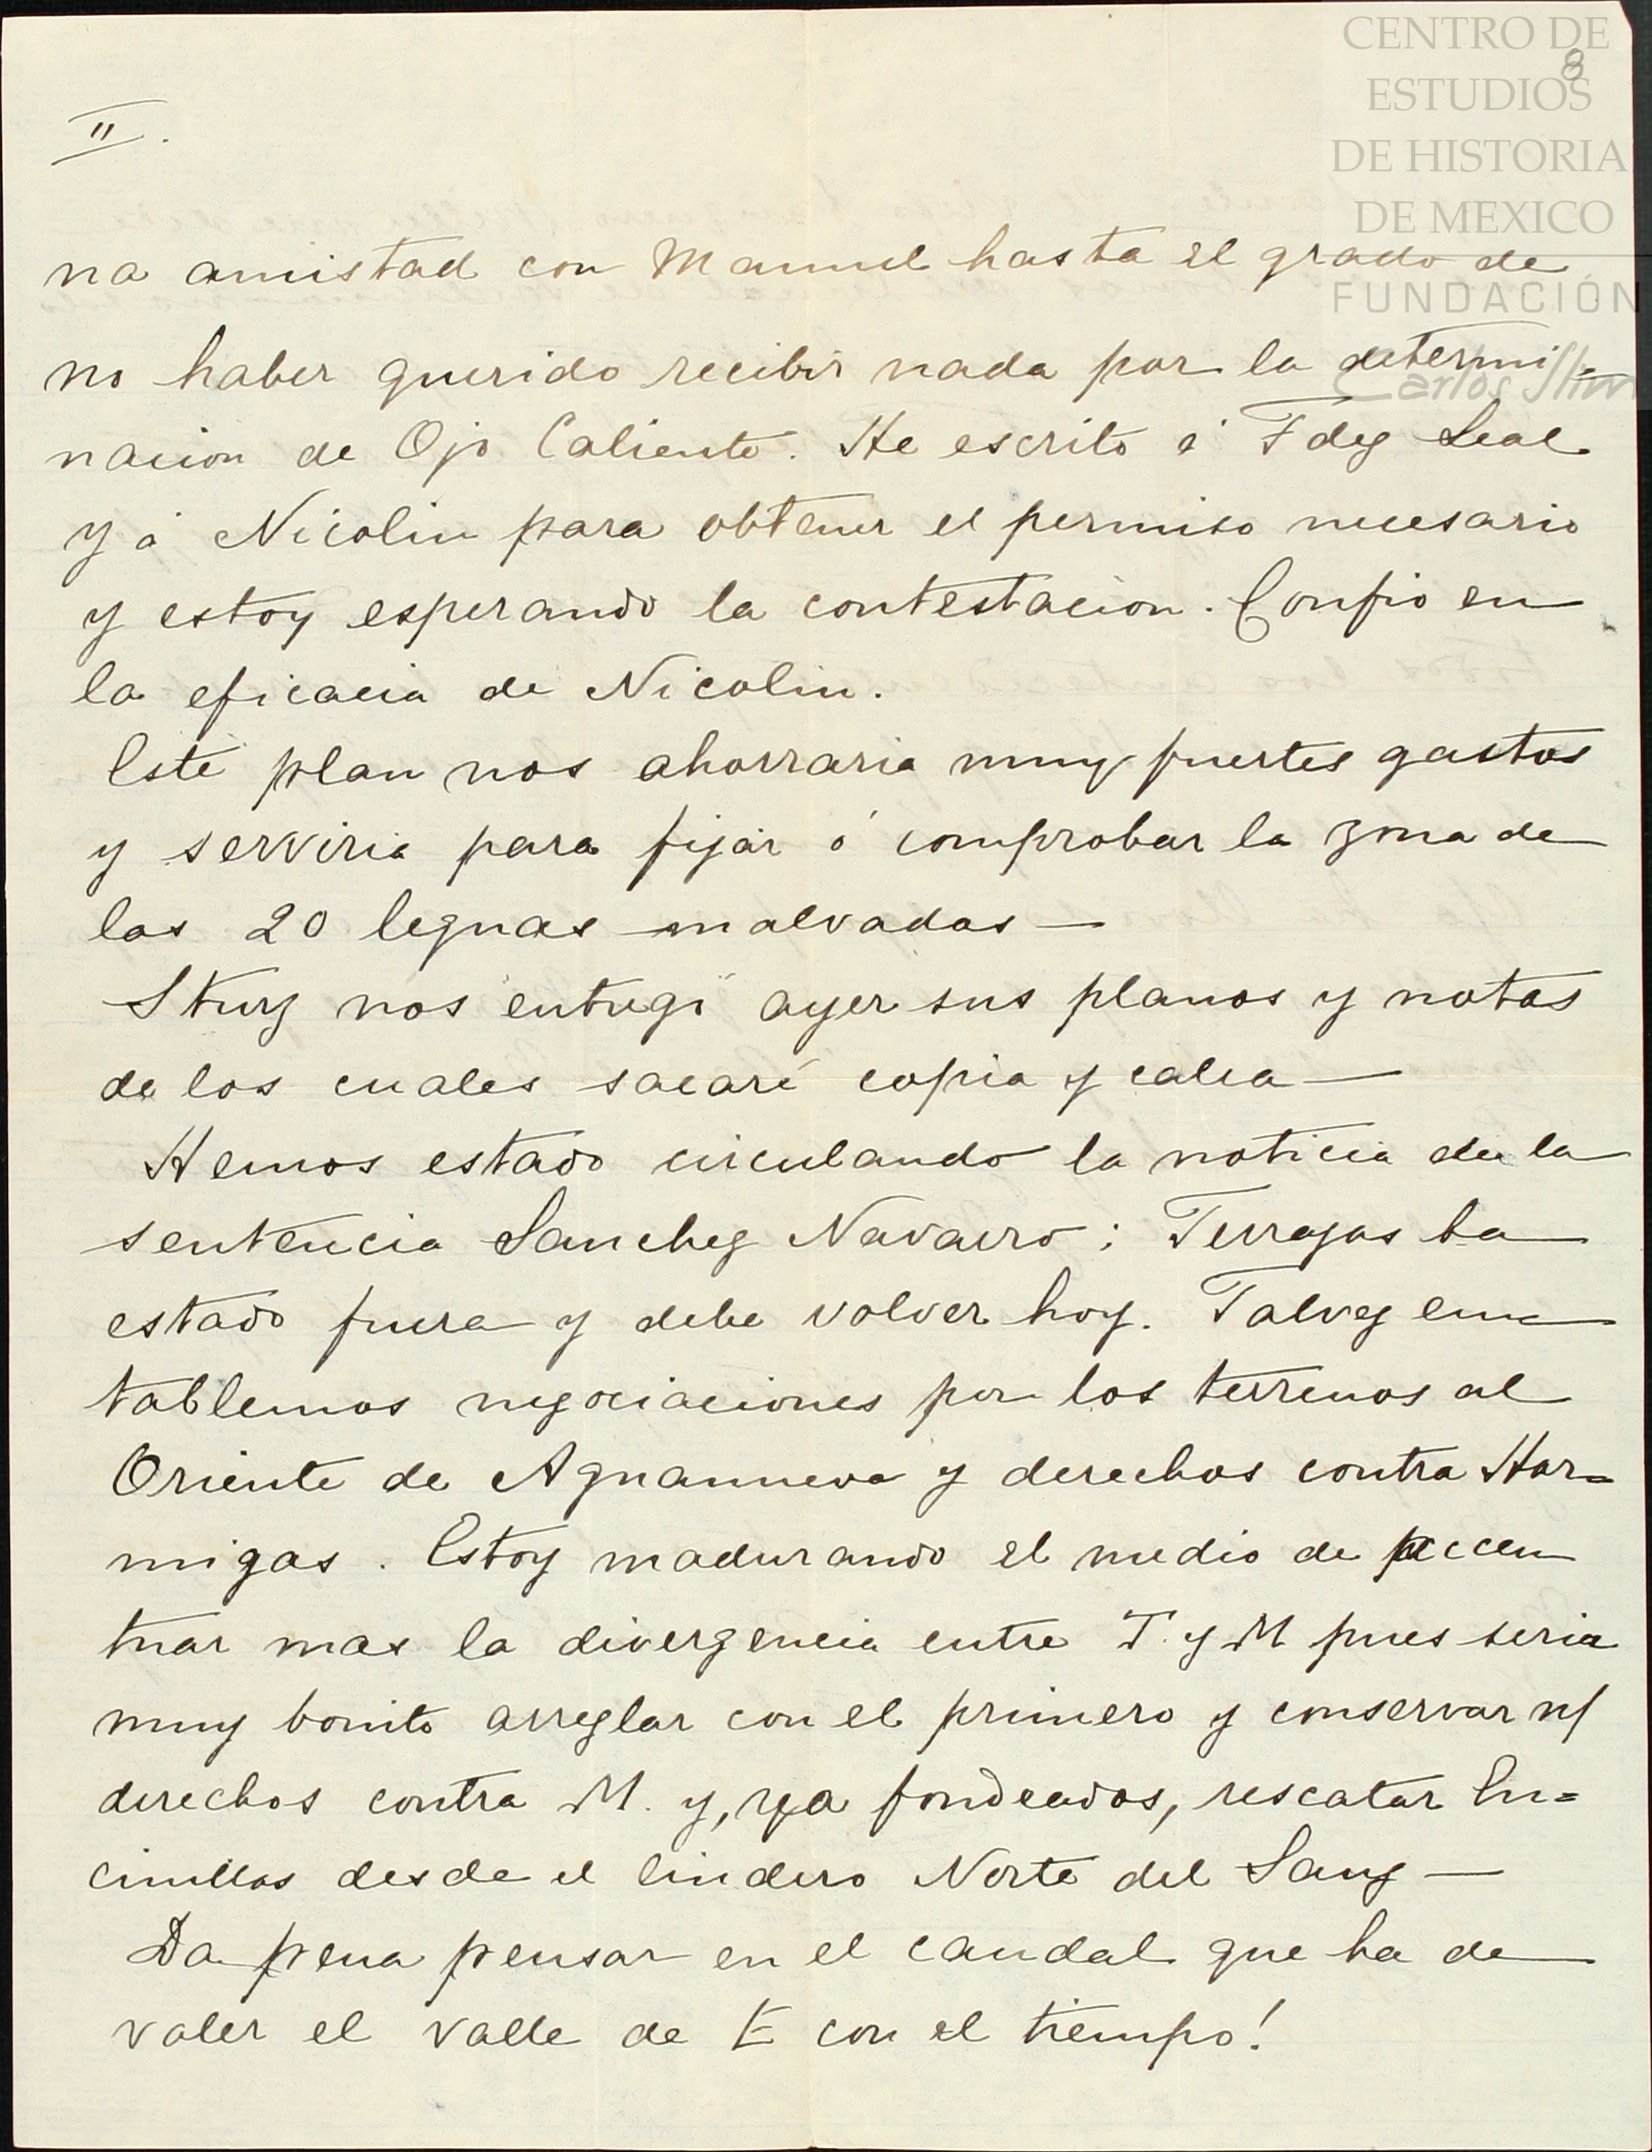 CENTRO DE
ESTUDIOS
DE HISTORIA
DE MEXICO
FUNDACIÓN
Carlos Slim
8
II.
na amistad con Manuel hasta el grado de
no haber querido recibir nada por la determi-
nacion de Ojo Caliente. He escrito á Fdez Leal
y á Nicolin para obtener el permiso necesario
y estoy esperando la contestacion. Confio en
la eficacia de Nicolin.
Este plan nos ahorraria muy fuertes gastos
y serviria para fijar ó comprobar la zona de
las 20 leguas malvadas —
Sturz nos entregó ayer sus planos y notas
de los cuales sacaré copia y calca —
Hemos estado circulando la noticia de la
sentencia Sanchez Navarro; Terrazas ha
estado fuera y debe volver hoy. Talvez en
tablemos negociaciones por los terrenos al
Oriente de Aguanueva y derechos contra Hor=
migas. Estoy madurando el medio de accen
tuar mas la divergencia entre T. y M pues seria
muy bonito arreglar con el primero y conservar n/
derechos contra M. y, ya fondeados, rescatar En=
cinillas desde el lindero Norte del Sauz —
Da pena pensar en el caudal que ha de
valer el valle de E con el tiempo!